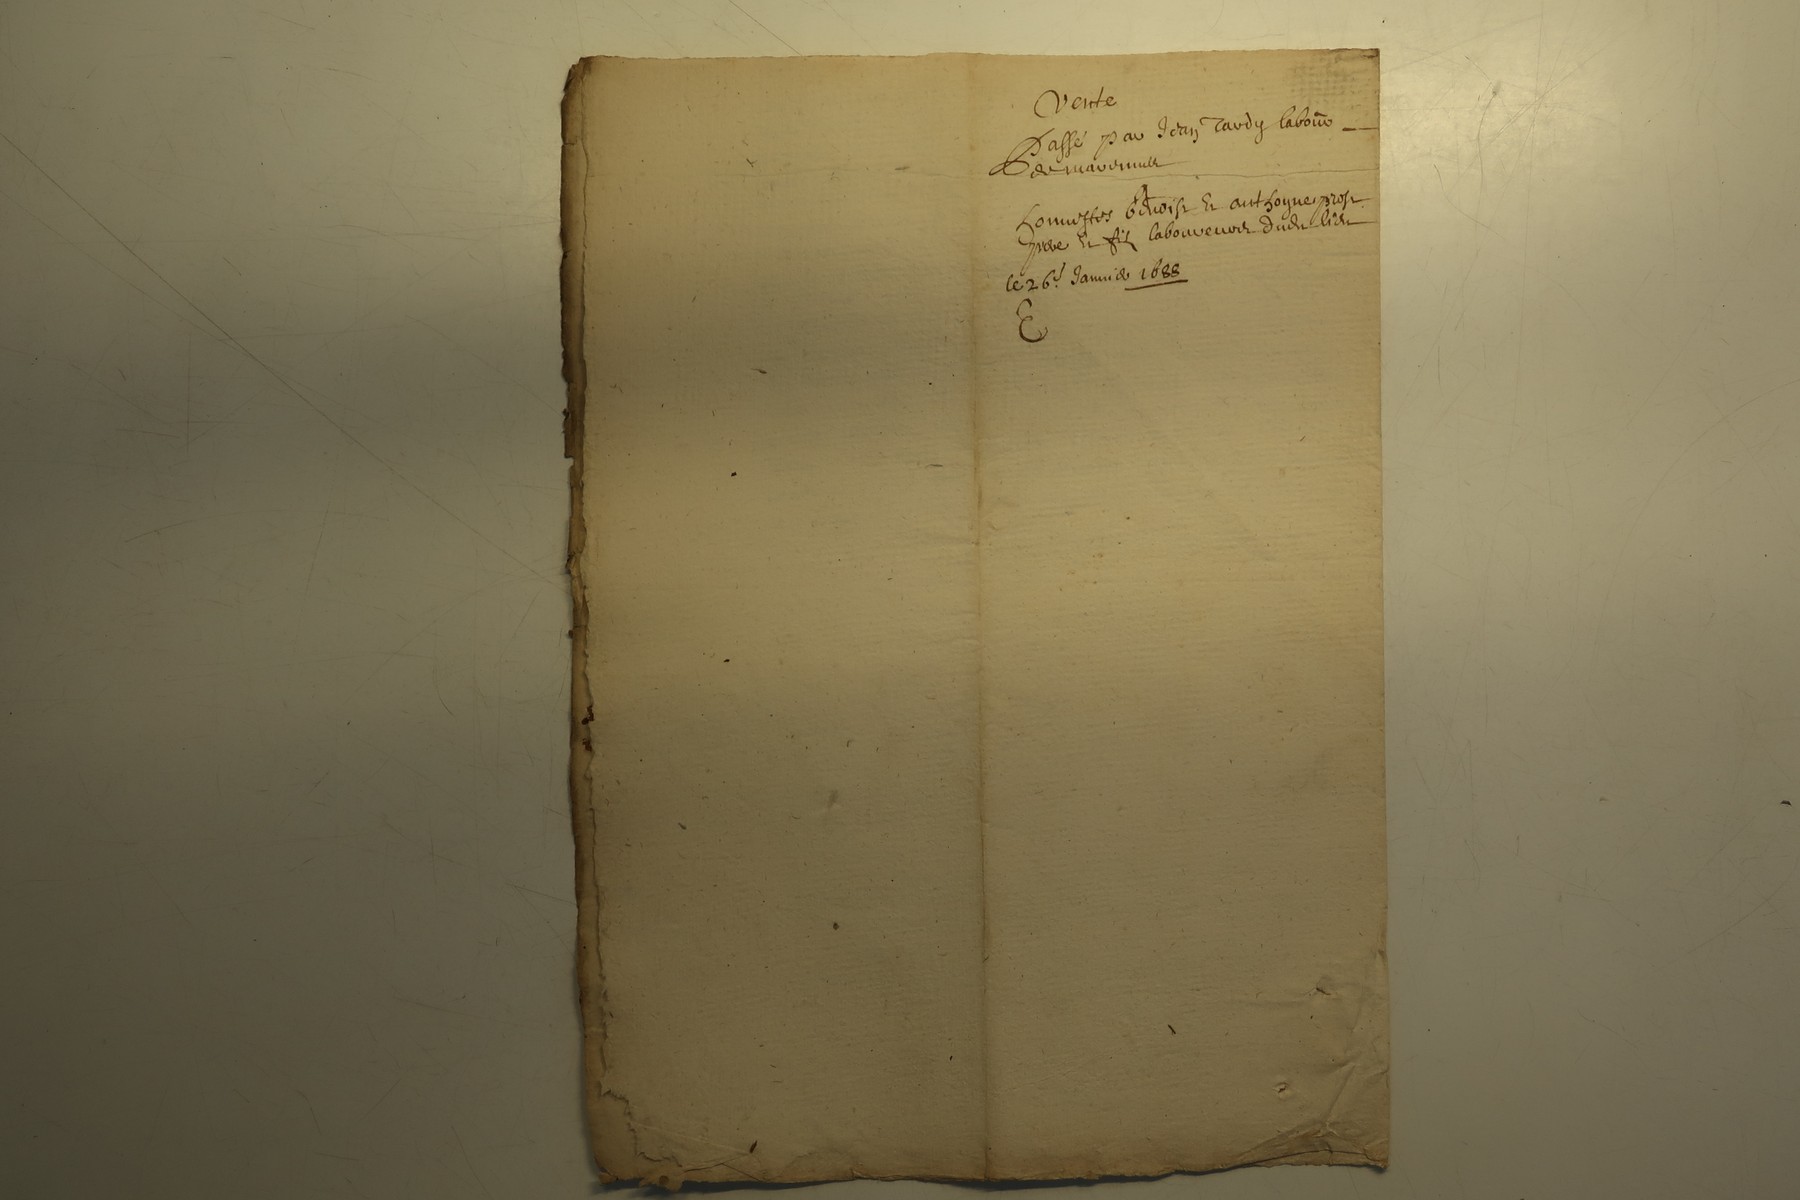 Vente
Passé par Jean Tardy labour
de
A
honnestes benoist et anthoyne
pere et filz laboureurs dudit lieu
le 26e Janvier 1688
E